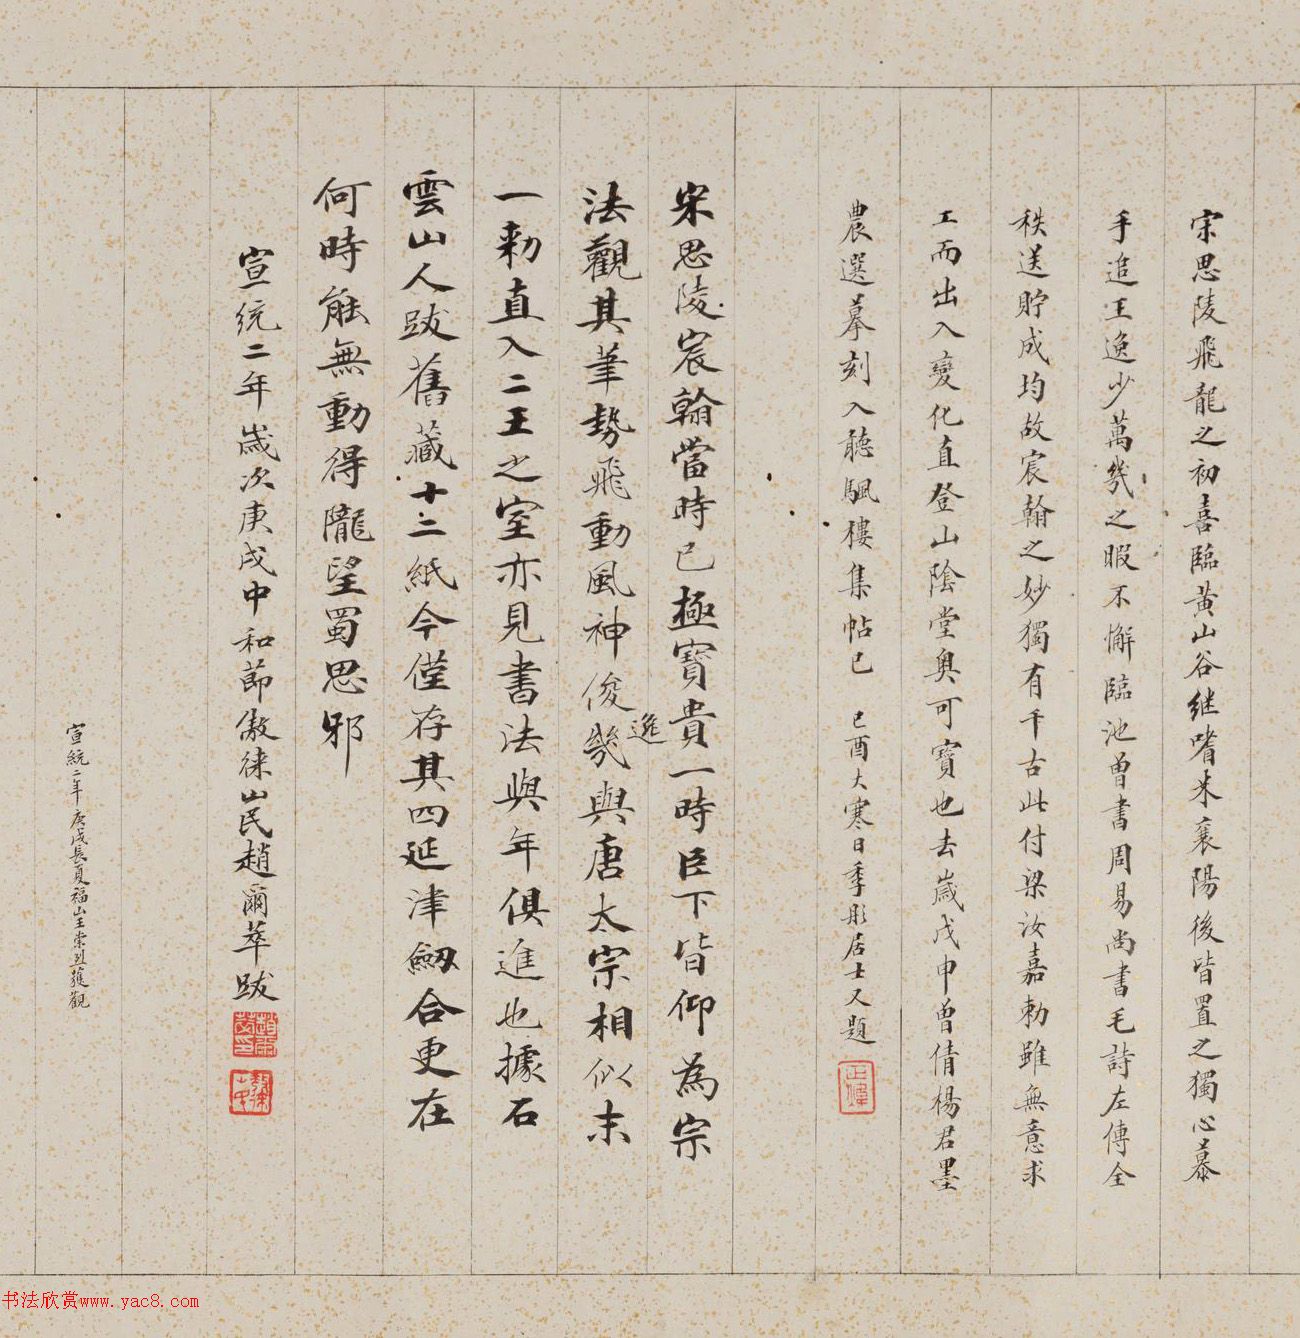 宗思陵飛龍之初喜臨黃山谷继嗜米襄陽後皆置之獨心慕
手追王逸少萬幾之暇不懈臨池曾書周易尚書毛詩左傳全
秩送貯成均故宸翰之妙獨有千古此付梁汝嘉勅雖無意求
工而出入變化直登山陰堂奧可寶也去歲戊申曾倩楊君墨
農選摹刻入聽颿樓集帖已 己酉大寒日季彤居士又題
宋思陵宸翰當時已極寳貴一時臣下皆仰為宗
法觀其筆勢飛動風神俊逸幾與唐太宗相似末
一勅直入二王之室亦見書法與年俱進也據石
雲山人跋舊藏十二紙今僅存其四延津劔合更在
何時能無動得隴望蜀思邪
宣統二年歲次庚戌中和節傲徠山民趙爾萃跋
宣統二年庚戌長夏福山王崇烈獲觀
书法欣赏www.yac8.com